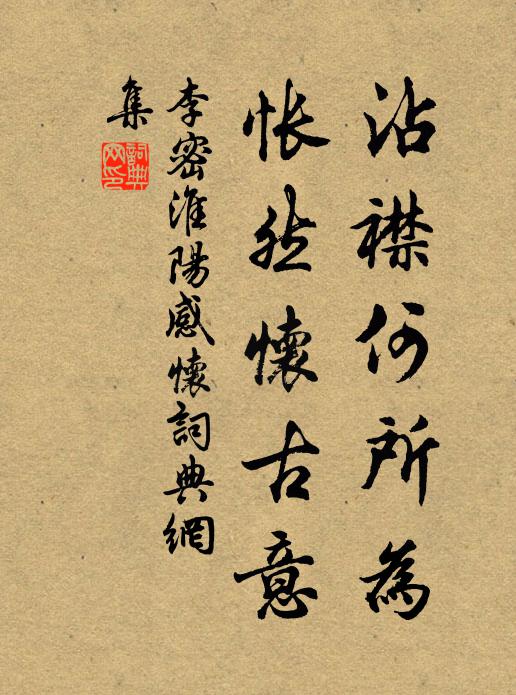 沾襟何所為
悵然懷古意
李密淮陽感懷詞典網
集
詞典網印